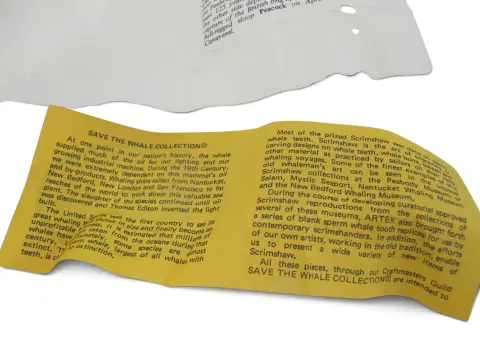 the other side dep
of the British Brig
sloop Peacock on Apr
Canaveral.
SAVE THE WHALE COLLECTION®
At one point in our nation's history, the whale
supplied much of the oil for our lighting and our
growing industrial machine. During the 19th Century,
we were extremely dependent on this mammal's oil
and by-products. Whaling ships sailed from Nantucket,
New Bedford, New London and San Francisco to far
reaches of the world to hunt down this valuable sea
giant. The slaughter of the species continued until oil
was discovered and Thomas Edison invented the light
bulb.
The United States was the first country to see its
great whaling fleets in size and finally die as
unprofitable. It is estimated that million of
whales taken from the oceans during that
century. some species are almost
extinct. whale, largest of all whale with
teeth, is extinction.
Most of the prized Scrimshaw was done on the
whale teeth. Scrimshaw is the art of
carving designs on whale teeth, whale bone and
other material as practiced by sailors on
whaling voyages. Some of the finest examples of the
old whaleman's art can be seen in
Scrimshaw collections at the Peabody Museum of
Salem, Mystic Seaport, Nantucket Whaling Museum
and the New Bedford Whaling Museum.
During the course of developing curatorial approved
Scrimshaw reproductions from the collections of
several of these museums, ARTEK also brought forth
a series of blank sperm whale tooth replicas for use by
contemporary scrimshanders. In addition, the efforts
of our own artists, working in the old tradition, enable
us to present a wide variety of new items of
Scrimshaw.
All these pieces, through our Craftmasters Guild
SAVE THE WHALE COLLECTION® are intended to